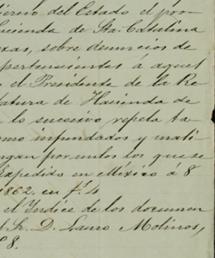 ierno del Estado el pro-
hacienda de Sta. Catalina
exas, sobre denuncios de
pertenecientes á aquel
el Presidente de la Re
atura de Hacienda de
lo sucesivo repela ta
omo infundados y mali
ngan por untos los que se
expedido en México a 8
1862. en f. 4
el Indice de los documen
Sr. D. Lauro Molinos,
8.